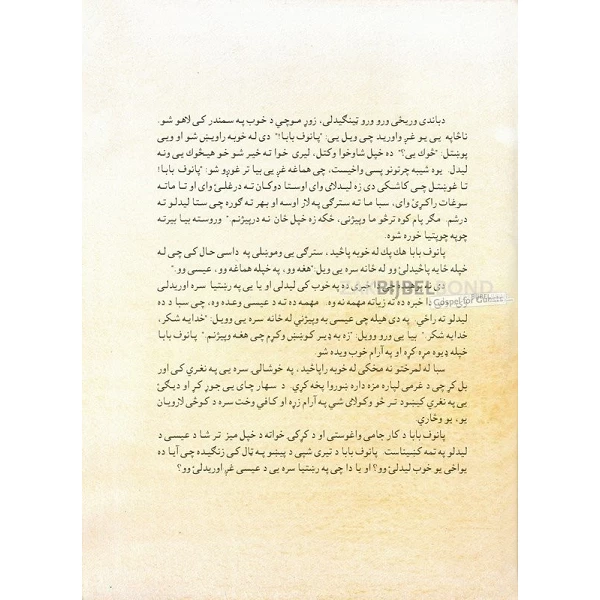 دباندی وریځی ورو ورو ټینګیدلی، زوړ موچي د خوب په سمندر کی لاهو شو.
ناڅاپه یی یو غږ واورید چی ویل یی: "پانوف بابا!" دی له خوبه راویښ شو او ویی
پوښتل: "څوك یی؟" ده خپل شاوخوا وکتل، لیری خوا ته ځیر شو خو هیڅوك یی ونه
لیدل. یوه شیبه چرتونو پسی واخیست، چی هماغه غږ یی بیا تر غوږو شو: "پانوف بابا!
تا غوښتل چی کاشکی دی زه لیدلای وای اوستا دوکان ته درغلی وای او تا ماته
سوغات راکړی وای، سبا مـا تـه سترګی په لار اوسه او بهر ته ګوره چی ستا لیدلو ته
درشم. مګر پام کوه ترڅو ما وپیژنی، ځکه زه خپل ځان نه درپیژنم." وروسته بیا بیرته
چوپه چوپتیا خوره شوه.
پانوف بابا هك پك له خوبه پاڅید، سترګی یی وموښلی په داسی حال کی چی له
خپله ځایه پاڅیدلی وو له ځانه سره یی ویل:"هغه وو، په خپله هماغه وو، عیسی وو."
دی نه خبری ده په خوب کی لیدلی او یا یی په رښتیا سره اوریدلی
دا خبره ده ته زیاته مهمه نه وه.. مهمه ده ته د عیسی وعده وه، چی سبا د ده
لیدلو ته راځي. په دی هیله چی عیسی به وپیژني له ځانه سره یی وویل: "خدایه شکر،
خدایه شکر." بیا یی ورو وویل: "زه به ډیر کوښښ وکړم چی هغه وپیژنم." پانوف بابا
خپله ډیوه مړه کړه او په آرام خوب ویده شو.
سبا له لمرختو نه مخکی له خوبه راپاڅید، په خوشالی سره یی په نغري کی اور
بل کړ چی د غرمی لپاره مزه داره ښوروا پخه کړي. د سهار چای یی جوړ کړ او دیګی
یی په نغري کیښود تر څو وکولای شي په آرام زړه او کافي وخت سره د کوڅی لارویان
یو، یو وڅاري.
پانوف بابا د کار جامی واغوستی او د کړکی خواته د خپل میز تر شا د عیسی د
لیدلو په تمه کښیناست. پانوف بابا د تیری شپی د پیښو په ټال کی زنګیده چی آیا ده
یواځی یو خوب لیدلی وو؟ او یا دا چی په رښتیا سره یی د عیسی غږ اوریدلی وو؟
BIJBELBOND
Gospel for Guests